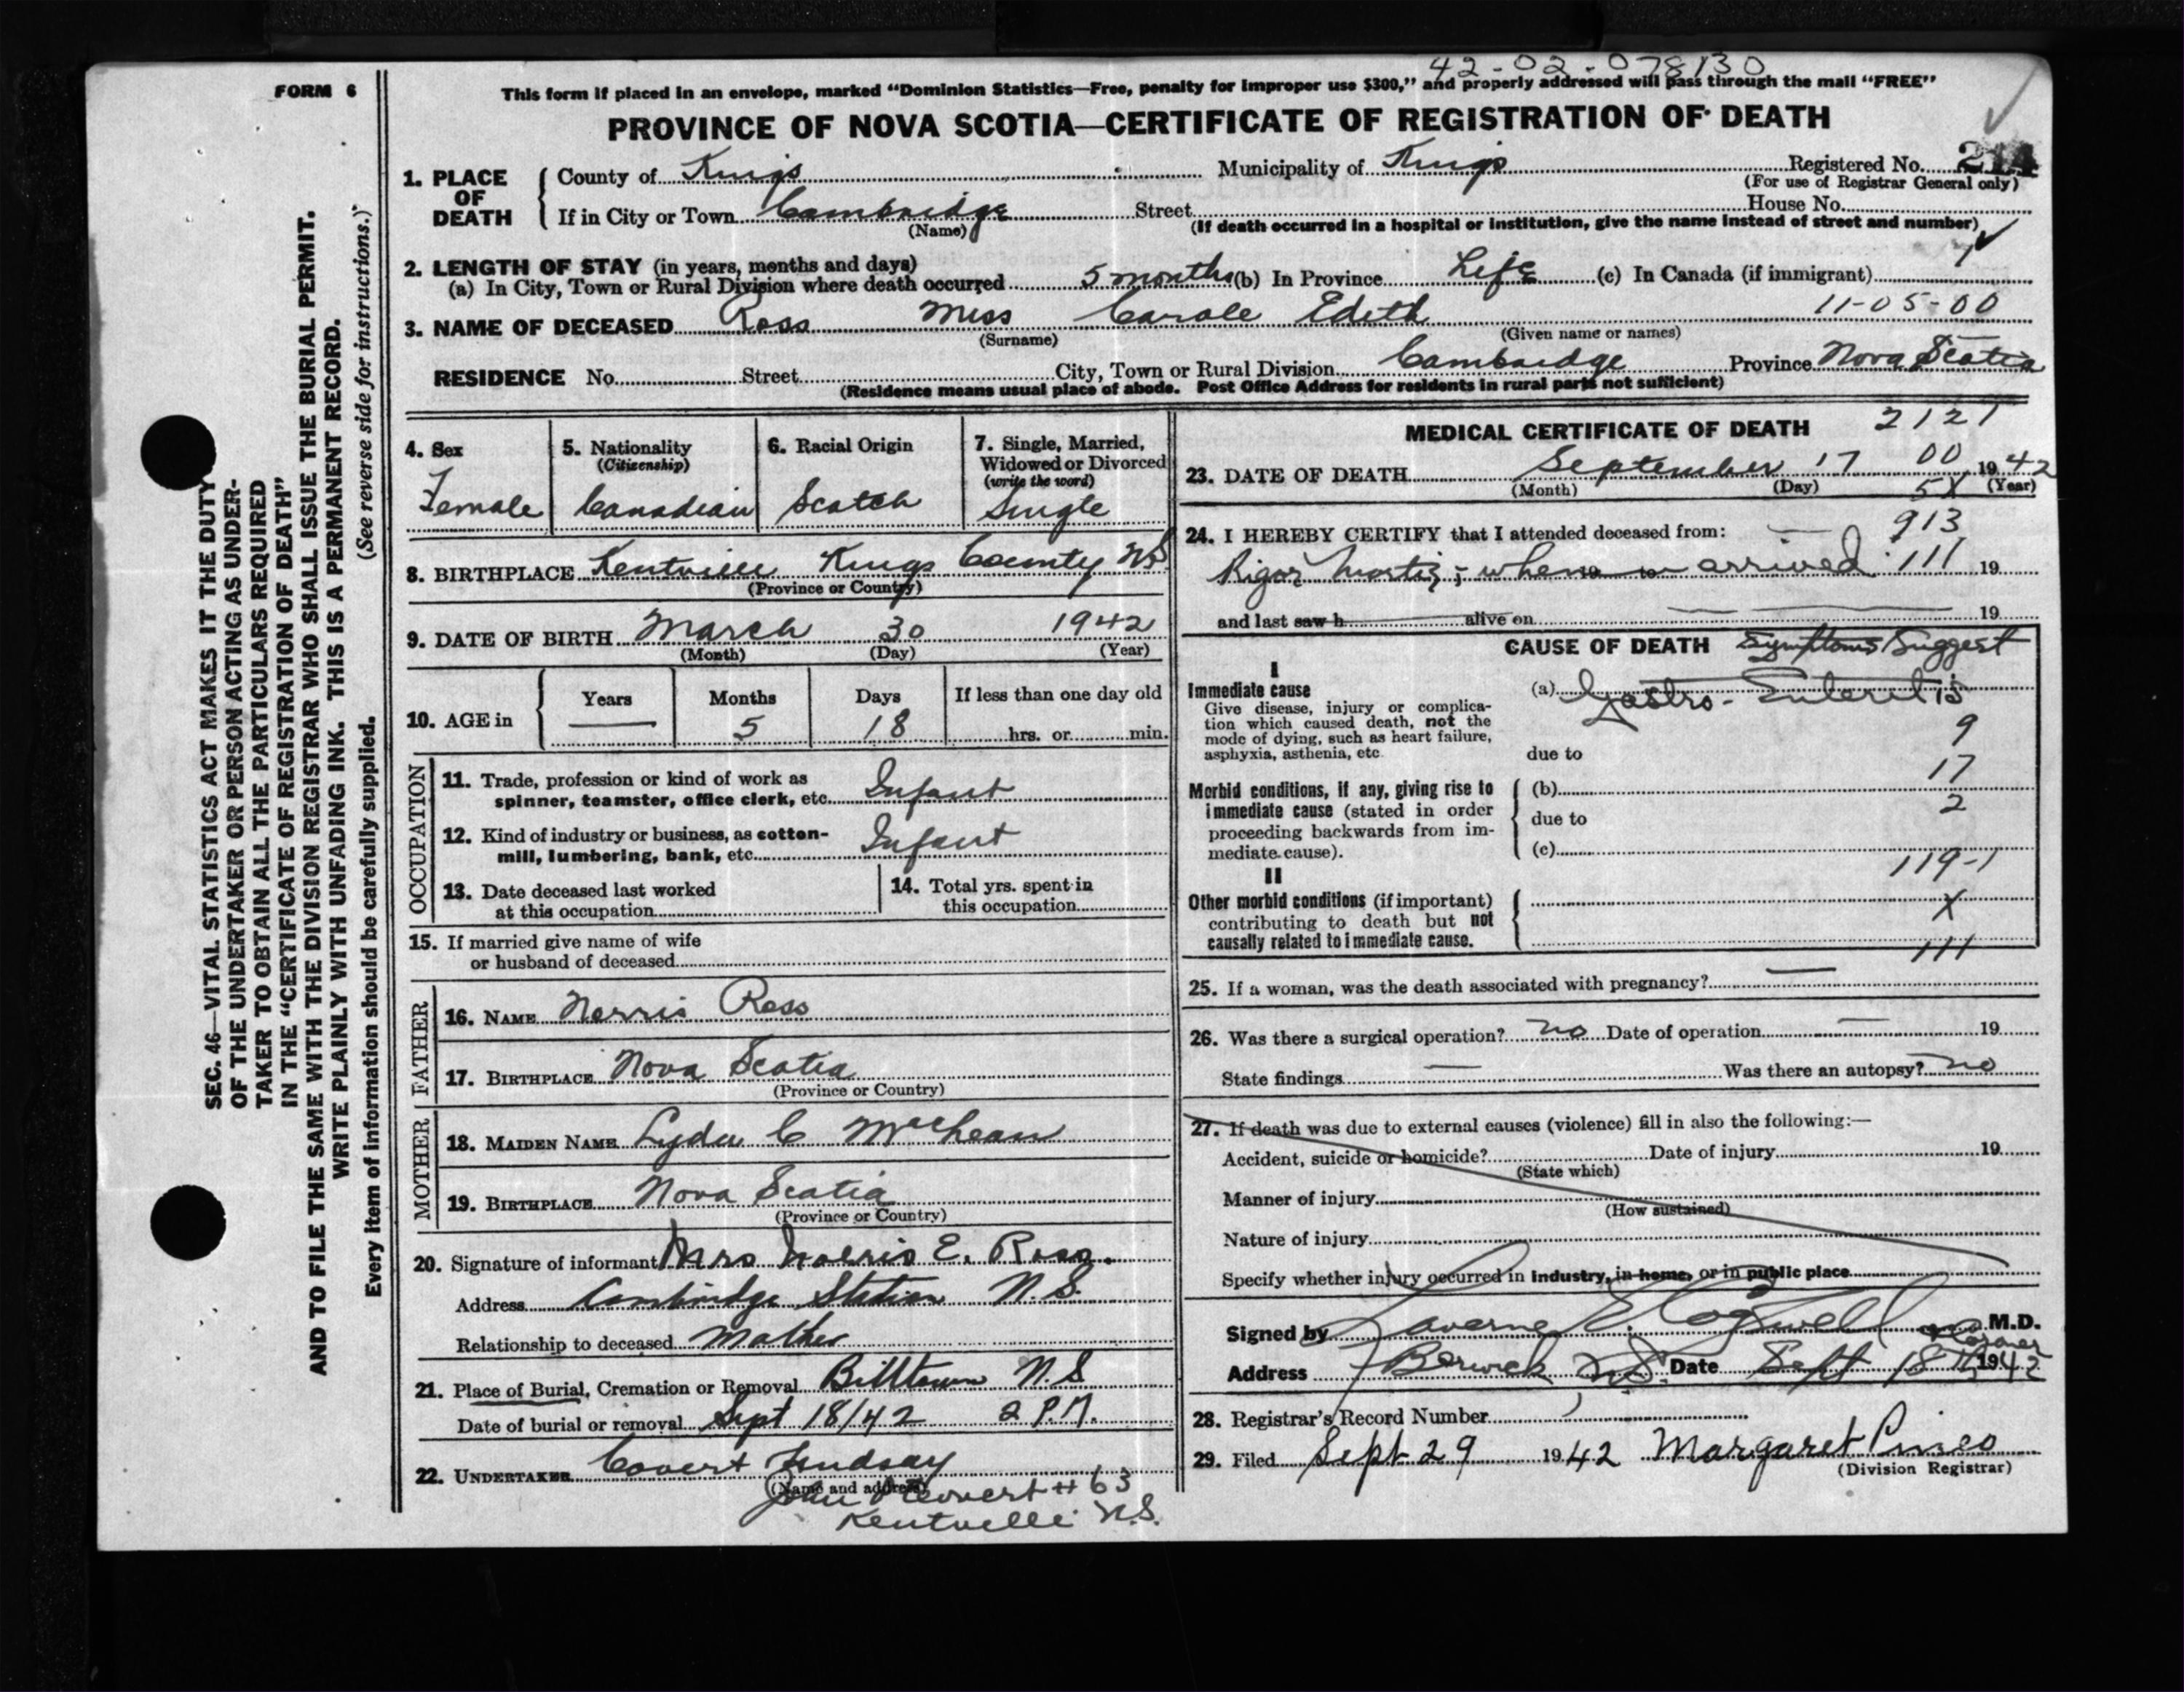 42-02-078130
FORM 6
This form if placed in an envelope, marked “Dominion Statistics—Free, penalty for improper use $300,” and properly addressed will pass through the mail “FREE”
PROVINCE OF NOVA SCOTIA—CERTIFICATE OF REGISTRATION OF DEATH
1. PLACE OF DEATH County of Kings Municipality of Kings Registered No. 214
(For use of Registrar General only)
If in City or Town Cambridge Street House No.
(Name) (If death occurred in a hospital or institution, give the name instead of street and number)
2. LENGTH OF STAY (in years, months and days)
(a) In City, Town or Rural Division where death occurred 5 months (b) In Province Life (c) In Canada (if immigrant)
11-05-00
3. NAME OF DECEASED Ross Miss Carole Edith
(Surname) (Given name or names)
RESIDENCE No. Street City, Town or Rural Division Cambridge Province Nova Scotia
(Residence means usual place of abode. Post Office Address for residents in rural parts not sufficient)
4. Sex
Female
5. Nationality
(Citizenship)
Canadian
6. Racial Origin
Scotch
7. Single, Married,
Widowed or Divorced
(write the word)
Single
8. BIRTHPLACE Kentville Kings County N.S.
(Province or Country)
9. DATE OF BIRTH March 30 1942
(Month) (Day) (Year)
10. AGE in Years Months Days If less than one day old
— 5 18 hrs. or min.
OCCUPATION
11. Trade, profession or kind of work as
spinner, teamster, office clerk, etc. Infant
12. Kind of industry or business, as cotton-
mill, lumbering, bank, etc. Infant
13. Date deceased last worked
at this occupation
14. Total yrs. spent in
this occupation
15. If married give name of wife
or husband of deceased
FATHER
16. NAME Norris Ross
17. BIRTHPLACE Nova Scotia
(Province or Country)
MOTHER
18. MAIDEN NAME Lyda C
19. BIRTHPLACE Nova Scotia
(Province or Country)
20. Signature of informant Mrs Norris E. Ross.
Address Cambridge Station N.S.
Relationship to deceased Mother
21. Place of Burial, Cremation or Removal Billtown N.S
Date of burial or removal Sept 18/42 2 P.M.
22. UNDERTAKER Covert Lindsay
(Name and address)
John Covert # 63
Kentville N.S.
MEDICAL CERTIFICATE OF DEATH 2121
23. DATE OF DEATH September 17 00 1942
(Month) (Day) 5X (Year)
24. I HEREBY CERTIFY that I attended deceased from: — 913
Rigor Mortis; when arrived 111 19
and last saw h alive on 19
CAUSE OF DEATH Symptoms Suggest
I
Immediate cause
Give disease, injury or complica-
tion which caused death, not the
mode of dying, such as heart failure,
asphyxia, asthenia, etc.
(a) Gastro-Enteritis
9
due to
17
Morbid conditions, if any, giving rise to
immediate cause (stated in order
proceeding backwards from im-
mediate cause).
(b)
2
due to
(c)
119-1
II
Other morbid conditions (if important)
contributing to death but not
causally related to immediate cause.
X
111
25. If a woman, was the death associated with pregnancy? —
26. Was there a surgical operation? no Date of operation — 19
State findings — Was there an autopsy? no
27. If death was due to external causes (violence) fill in also the following:—
Accident, suicide or homicide? Date of injury 19
(State which)
Manner of injury
(How sustained)
Nature of injury
Specify whether injury occurred in industry, in home, or in public place
Signed by Laverne E Cogswell M.D.
Coroner
Address Berwick N.S. Date Sept 18th 1942
28. Registrar's Record Number
29. Filed Sept 29 1942 Margaret Pineo
(Division Registrar)
SEC. 46—VITAL STATISTICS ACT MAKES IT THE DUTY
OF THE UNDERTAKER OR PERSON ACTING AS UNDER-
TAKER TO OBTAIN ALL THE PARTICULARS REQUIRED
IN THE “CERTIFICATE OF REGISTRATION OF DEATH”
AND TO FILE THE SAME WITH THE DIVISION REGISTRAR WHO SHALL ISSUE THE BURIAL PERMIT.
WRITE PLAINLY WITH UNFADING INK. THIS IS A PERMANENT RECORD.
(See reverse side for instructions.)
Every item of information should be carefully supplied.